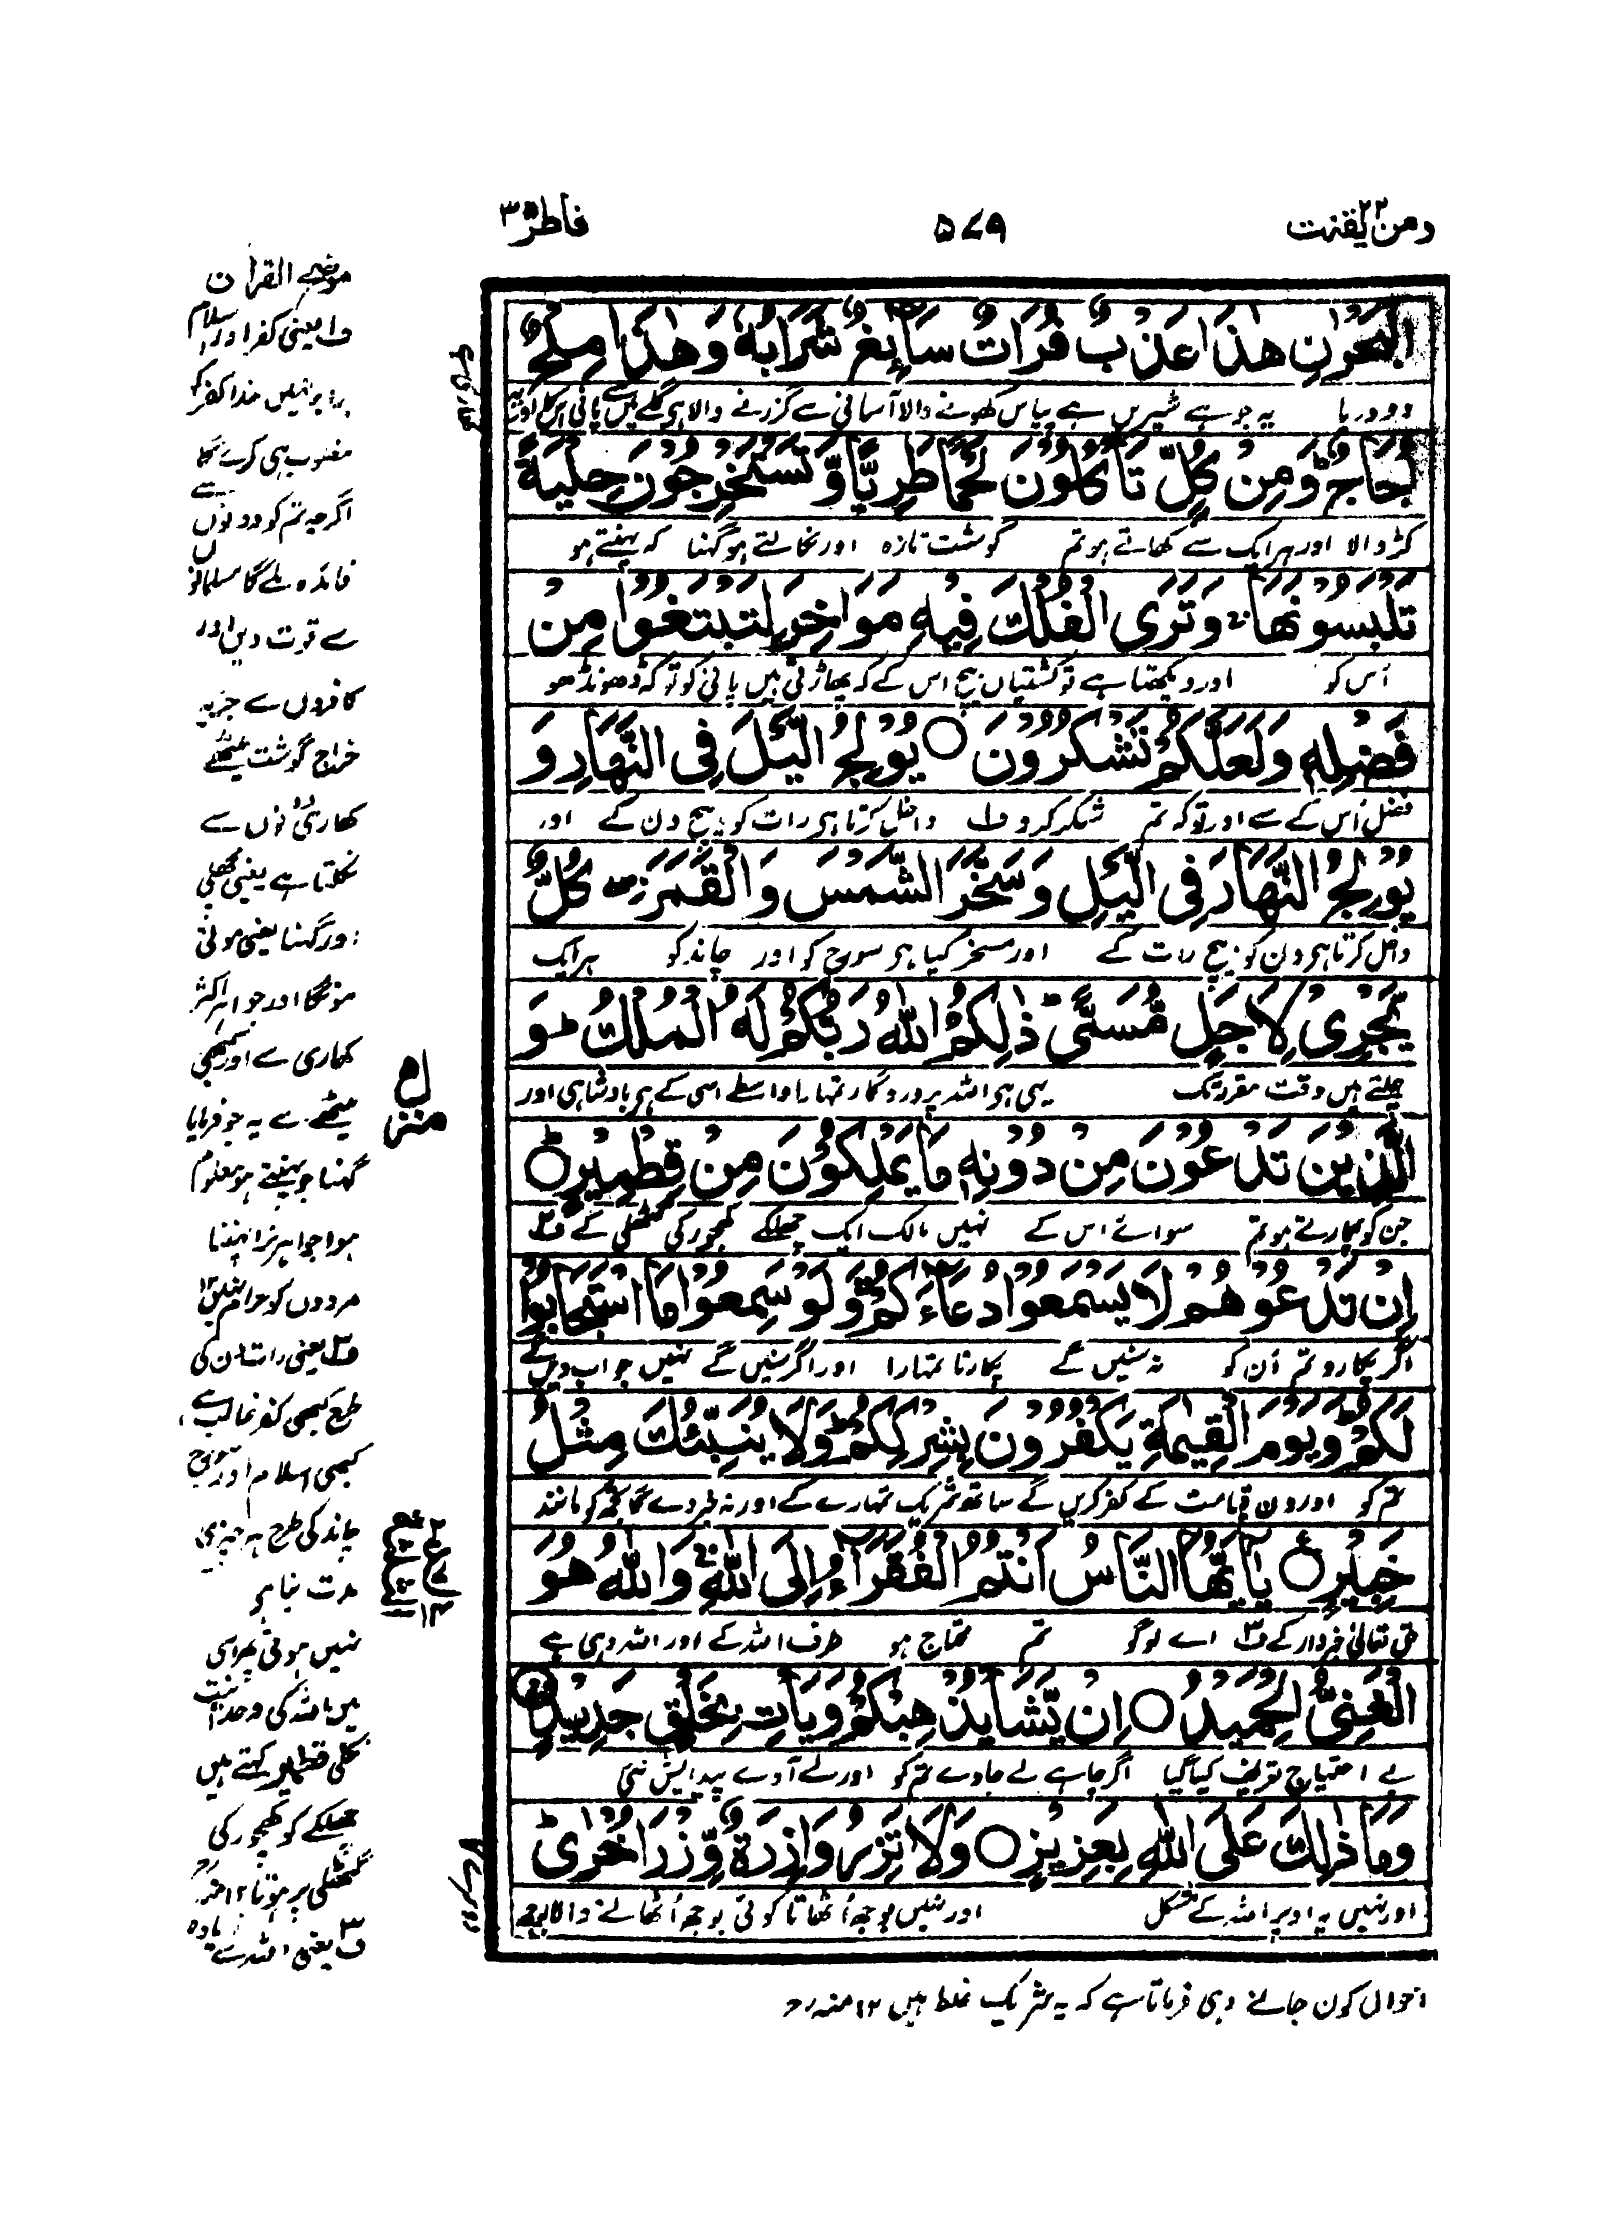 ومن یقنت ۲۲
۵۷۹
فاطر ۳۵
الْبَحْرٰنِ هٰذَا عَذْبٌ فُرَاتٌ سَآئِغٌ شَرَابُهٗ وَهٰذَا مِلْحٌ
دو دریا یہ جو ہے شیریں ہے پیاس کھونے والا آسانی سے گزرنے والا ہی گلے میں پانی اس کا اور یہ
اُجَاجٌ ؕ وَمِنْ كُلٍّ تَاْكُلُوْنَ لَحْمًا طَرِيًّا وَّ تَسْتَخْرِجُوْنَ حِلْيَةً
کڑوالا اور ہر ایک سے کھاتے ہو تم گوشت تازہ اور نکالتے ہو گہنا کہ پہنتے ہو
تَلْبَسُوْنَهَا ۚ وَ تَرَى الْفُلْكَ فِيْهِ مَوَاخِرَ لِتَبْتَغُوْا مِنْ
اس کو اور دیکھتا ہے تو کشتیاں بیچ اس کے کہ پھاڑتی ہیں پانی کو تو کہ ڈھونڈھو
فَضْلِهٖ وَلَعَلَّكُمْ تَشْكُرُوْنَ ○ يُوْلِجُ الَّيْلَ فِى النَّهَارِ وَ
فضل اس کے سے اور تو کہ تم شکر کرو ف۱ داخل کرتا ہی رات کو بیچ دن کے اور
يُوْلِجُ النَّهَارَ فِى الَّيْلِ وَ سَخَّرَ الشَّمْسَ وَالْقَمَرَ ۖ كُلٌّ
داخل کرتا ہی دن کو بیچ رات کے اور مسخر کیا ہی سورج کو اور چاند کو ہر ایک
يَّجْرِىْ لِاَجَلٍ مُّسَمًّى ؕ ذٰلِكُمُ اللّٰهُ رَبُّكُمْ لَهُ الْمُلْكُ ؕ وَ
چلتے ہیں وقت مقرر تک یہی ہی اللہ پروردگار تمہارا واسطے اسی کے ہی بادشاہی اور
الَّذِيْنَ تَدْعُوْنَ مِنْ دُوْنِهٖ مَا يَمْلِكُوْنَ مِنْ قِطْمِيْرٍ ؕ ○
جن کو پکارتے ہو تم سوائے اس کے نہیں مالک ایک چھلکے کھجور کی گٹھلی کے ف۲
اِنْ تَدْعُوْهُمْ لَا يَسْمَعُوْا دُعَآءَكُمْ ۚ وَلَوْ سَمِعُوْا مَا اسْتَجَابُوْا
اگر پکارو تم ان کو نہ سنیں گے پکارنا تمہارا اور اگر سنیں گے نہیں جواب دیں گے
لَكُمْ ؕ وَيَوْمَ الْقِيٰمَةِ يَكْفُرُوْنَ بِشِرْكِكُمْ ؕ وَلَا يُنَبِّئُكَ مِثْلُ
تم کو اور دن قیامت کے کفر کریں گے ساتھ شریک تمہارے کے اور نہ خبر دے گا تجھ کو مانند
خَبِيْرٍ ○ يٰٓاَيُّهَا النَّاسُ اَنْتُمُ الْفُقَرَآءُ اِلَى اللّٰهِ ۚ وَاللّٰهُ هُوَ
حق تعالیٰ خبردار کے ف۳ اے لوگو تم محتاج ہو طرف اللہ کے اور اللہ وہی ہے
الْغَنِىُّ الْحَمِيْدُ ○ اِنْ يَّشَاْ يُذْهِبْكُمْ وَيَاْتِ بِخَلْقٍ جَدِيْدٍ
بے احتیاج تعریف کیا گیا اگر چاہے لے جاوے تم کو اور لے آوے پیدایش نئی
وَمَا ذٰلِكَ عَلَى اللّٰهِ بِعَزِيْزٍ ○ وَلَا تَزِرُ وَازِرَةٌ وِّزْرَ اُخْرٰى ؕ
اور نہیں یہ اوپر اللہ کے مشکل اور نہیں بوجھ اٹھاتا کوئی بوجھ اٹھانے والا بوجھ
موضح القرآن
ف۱ یعنی کفر اور اسلام
برابر نہیں خدا کفر کو
مغلوب ہی کرے گا
اگرچہ تم کو دونوں سے
فائدہ ملے گا مسلمانوں
سے قوت دین اور
کافروں سے جزیہ
خراج گوشت میٹھے
کھاری دونوں سے
نکلتا ہے یعنی مچھلی
اور گہنا یعنی موتی
مونگا اور جواہر اکثر
کھاری سے اور کبھی
میٹھے سے یہ جو فرمایا
گہنا جو پہنتے ہو معلوم
ہوا جواہر نرا پہننا
مردوں کو حرام نہیں ۱۲
ف۲ یعنی رات دن کی
طرح کبھی کفر غالب ہے
کبھی اسلام اور سورج
چاند کی طرح ہر چیز کی
مدت نہیں موتی پھر اسی
میں اللہ کی وحدانیت
نکلی قطمیر کہتے ہیں
چھلکے کو کھجور کی
گٹھلی پر ہوتا ۱۲ منہ رح
ف۳ یعنی اللہ سے زیادہ
منزل
احوال کون جانے وہی فرماتا ہے کہ یہ شریک غلط ہیں ۱۲ منہ رح